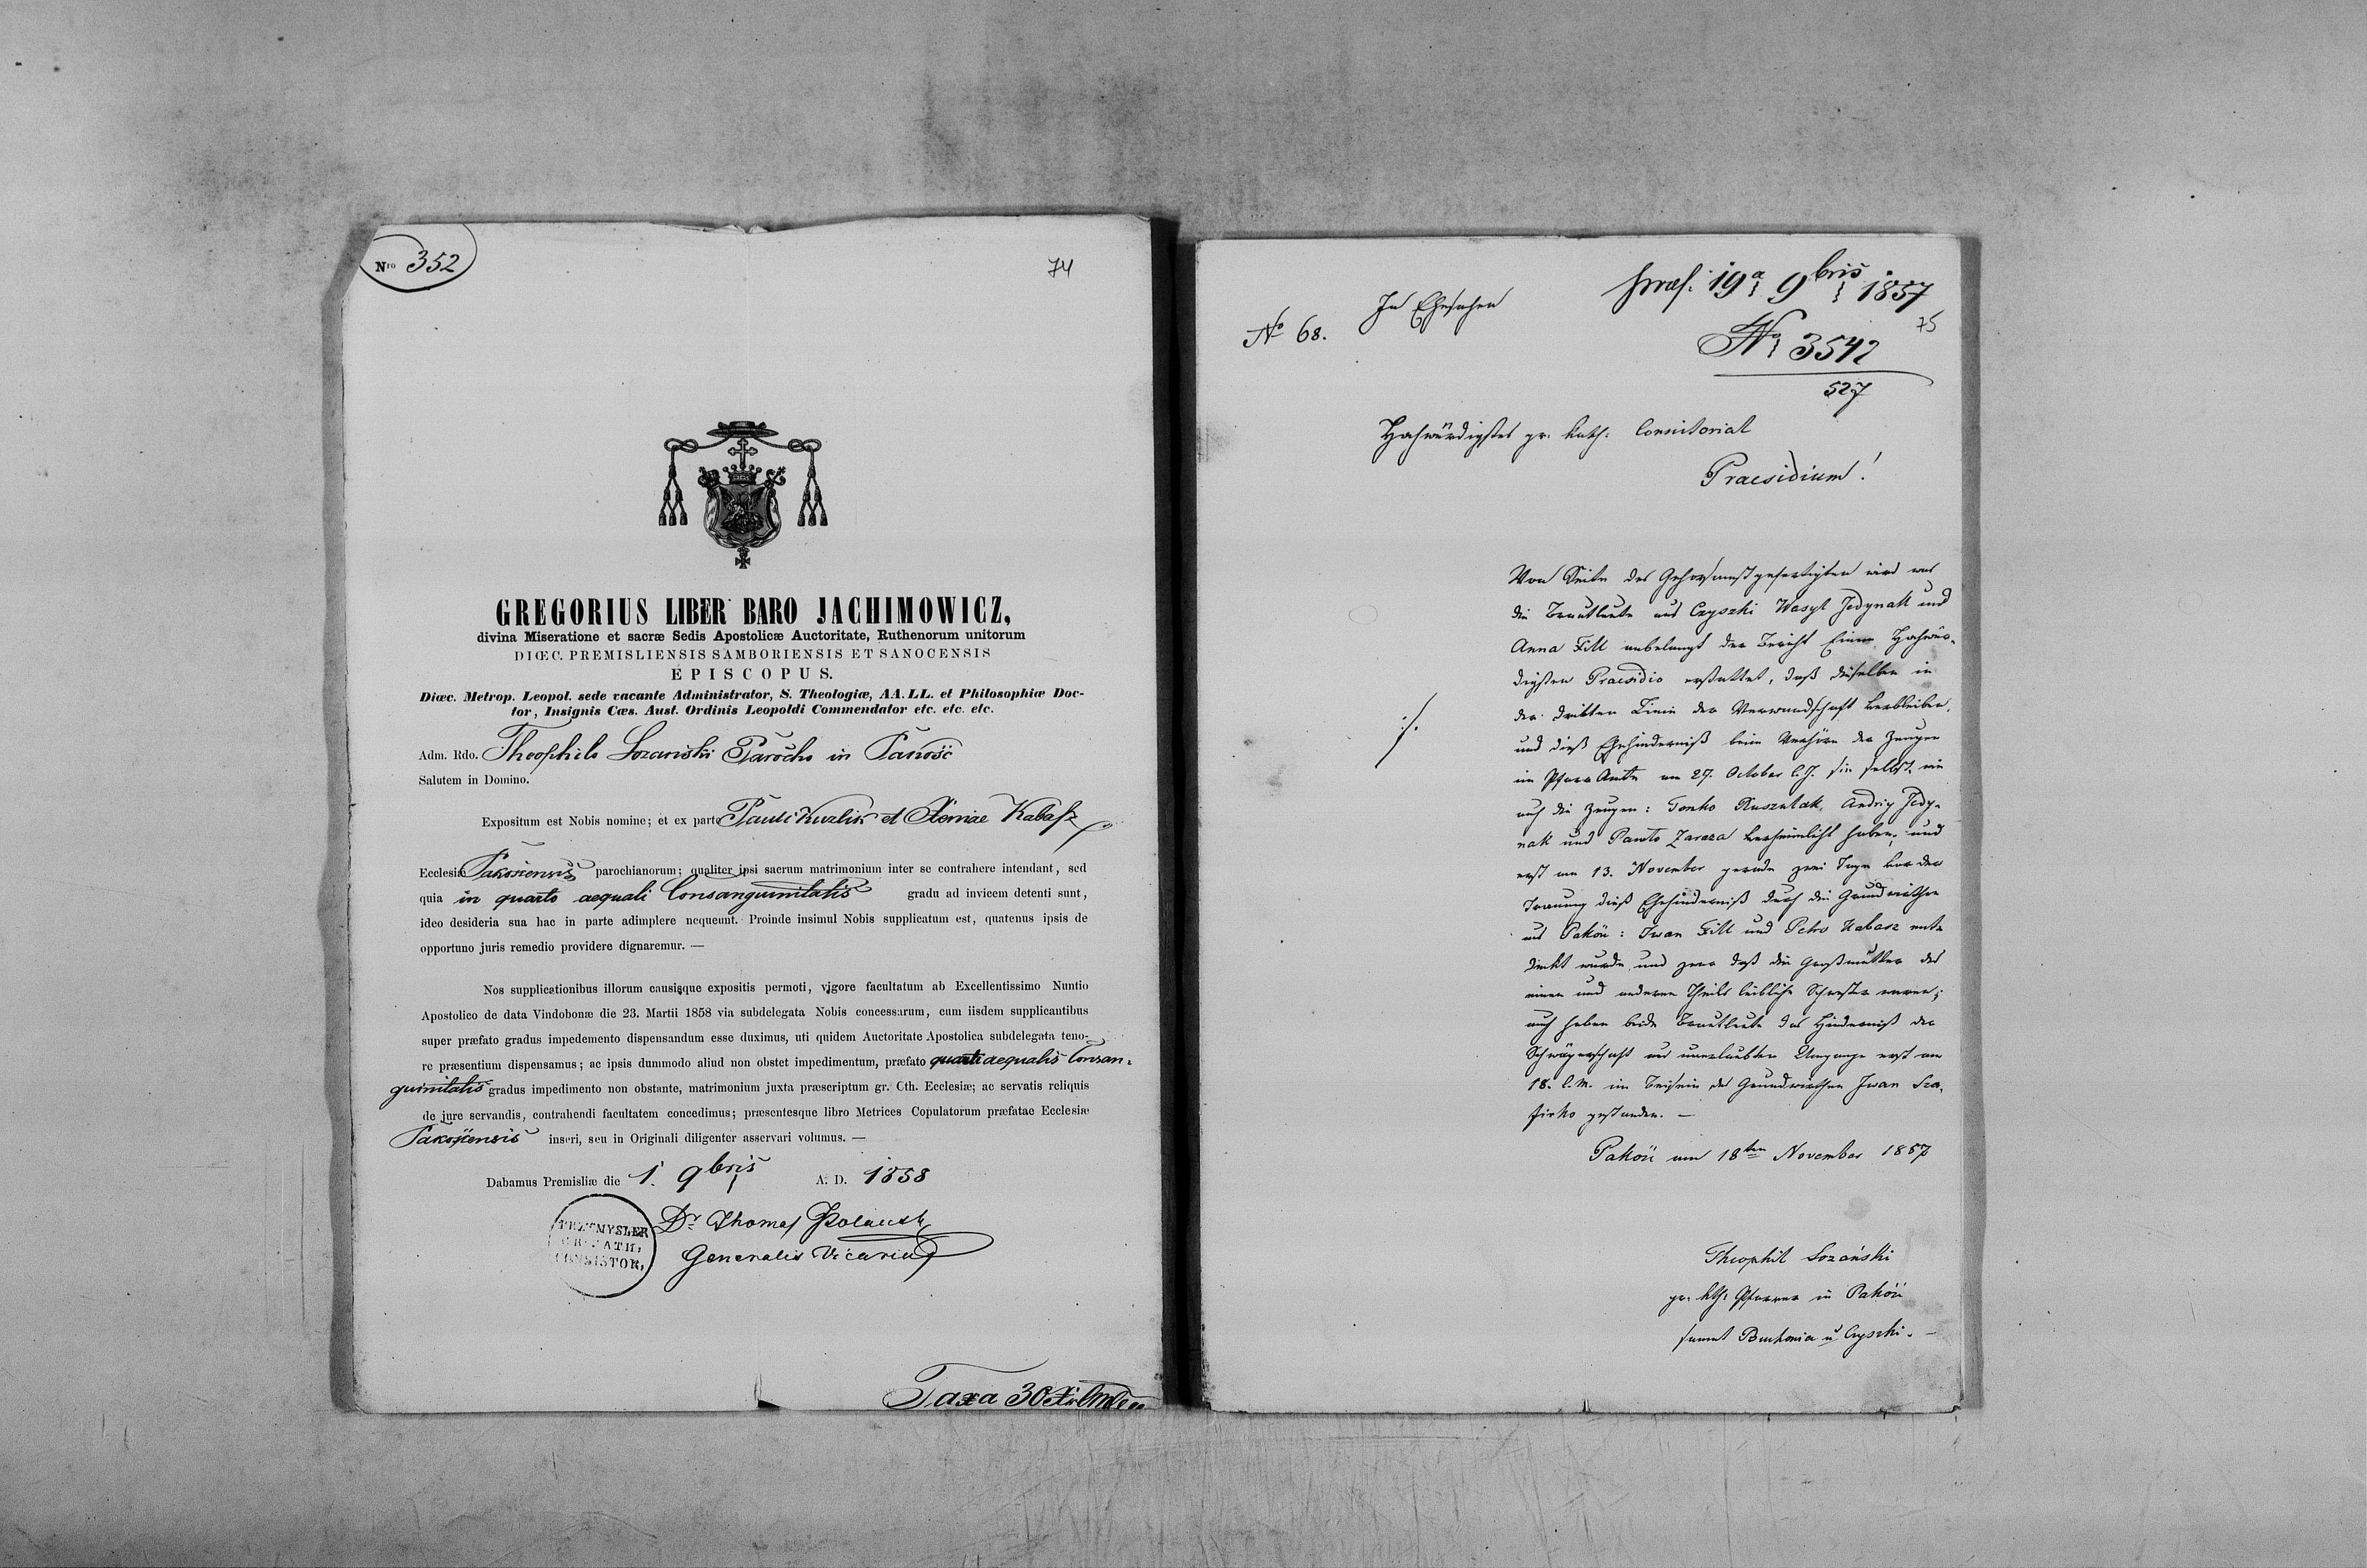 Nro 352
74
GREGORIUS LIBER BARO JACHIMOWICZ,
divina Miseratione et sacræ Sedis Apostolicæ Auctoritate, Ruthenorum unitorum
DIŒC. PREMISLIENSIS SAMBORIENSIS ET SANOCENSIS
EPISCOPUS.
Diœc. Metrop. Leopol. sede vacante Administrator, S. Theologiæ, AA. LL. et Philosophiæ Doc-
tor, Insignis Cæs. Aust. Ordinis Leopoldi Commendator etc. etc. etc.
Adm. Rdo. Theophilo Lozanski Parocho in Pakość
Salutem in Domino.
Expositum est Nobis nomine; et ex parte Pauli Kuzlik et Xeniae Kabasz
Ecclesiæ Pakosiensis parochianorum; qualiter ipsi sacrum matrimonium inter se contrahere intendant, sed
quia in quarto aequali Consanguinitatis gradu ad invicem detenti sunt,
ideo desideria sua hac in parte adimplere nequeunt. Proinde insimul Nobis supplicatum est, quatenus ipsis de
opportuno juris remedio providere dignaremur. —
Nos supplicationibus illorum causisque expositis permoti, vigore facultatum ab Excellentissimo Nuntio
Apostolico de data Vindobonæ die 23. Martii 1858 via subdelegata Nobis concessarum, cum iisdem supplicantibus
super præfato gradus impedemento dispensandum esse duximus, uti quidem Auctoritate Apostolica subdelegata teno-
re præsentium dispensamus; ac ipsis dummodo aliud non obstet impedimentum, præfato quarti aequalis Consan-
guinitatis gradus impedimento non obstante, matrimonium juxta præscriptum gr. Cth. Ecclesiæ; ac servatis reliquis
de jure servandis, contrahendi facultatem concedimus; præsentesque libro Metrices Copulatorum præfatae Ecclesiæ
Pakosiensis inseri, seu in Originali diligenter asservari volumus. —
Dabamus Premisliæ die 1. 9bris A. D. 1858
PRZEMYSLER
GR. KATH.
CONSISTOR,
Dr Thomas Polanski
Generalis Vicarius
Taxa 30 Xr
praes: 19a 9bris 1857
75
No 68.
In Ehesachen
No 3542
527
Hochwürdigstes gr. kath: Consistorial
Praesidium!
Von Seite des Gehorsamstgefertigten wird was
die Brautleute aus Czyszki Wasyl Jedynak und
Anna Fill anbelangt der Bericht Einem Hochwür-
digsten Praesidio erstattet, daß dieselben in
der dritten Linie der Verwandschaft verbleiben,
und dieß Ehehinderniß beim Verhöre der Zeugen
im Pfarr Amte am 27. October l. J. sie selbst, wie
auch die Zeugen: Tonko Ruszulak, Andriy Jedy-
nak und Pawlo Zaraza verheimlicht haben, und
erst am 13. November gerade zwei Tage vor der
Trauung dieß Ehehinderniß durch die Grundwirthen
aus Pakość: Iwan Fill und Petro Kabasz ent-
deckt wurde, und zwar daß die Großmütter des
einen und anderen Theils leibliche Schwester waren;
auch haben beide Brautleute das Hinderniß der
Schwägerschaft aus unerlaubten Umgange erst am
18. l. M. im Beisein des Grundwirthen Iwan Sza-
firko gestanden. —
Pakość am 18ten November 1857
Theophil Lozański
gr. kth: Pfarrer in Pakość
sammt Buchowice u Czyszki. —